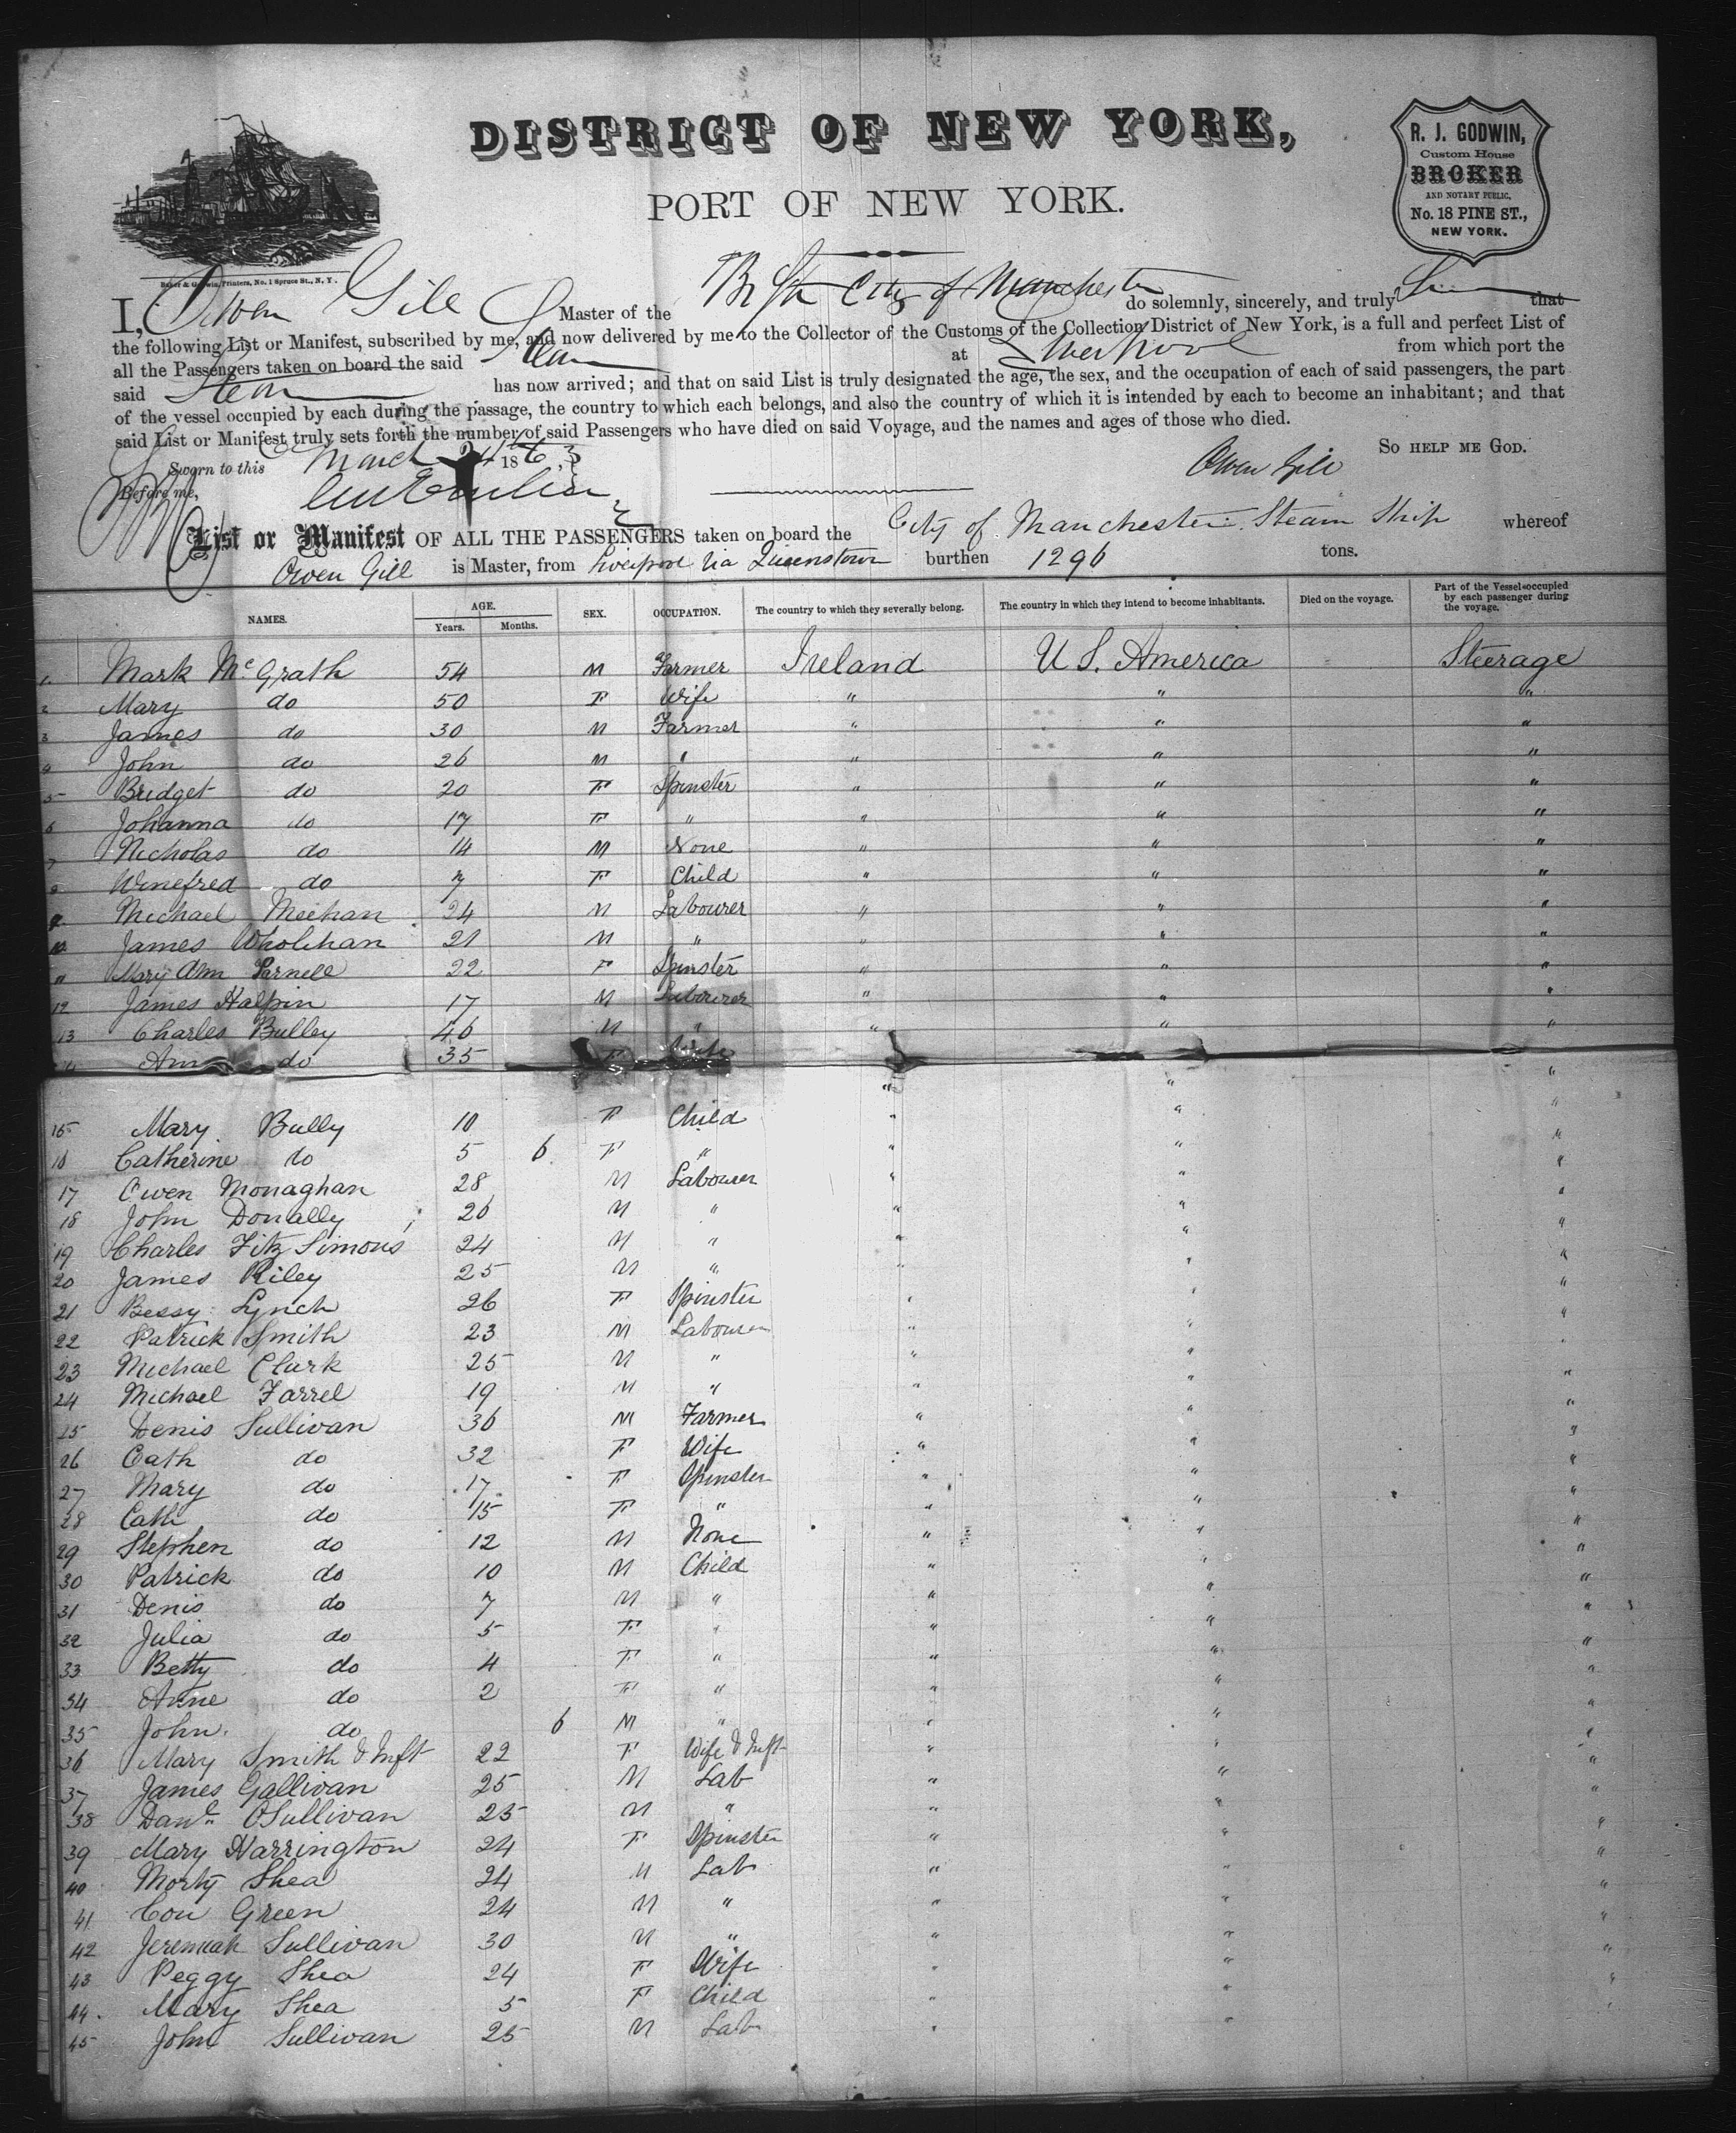 DISTRICT OF NEW YORK,
PORT OF NEW YORK.
R. J. GODWIN,
Custom House
BROKER
AND NOTARY PUBLIC,
No. 18 PINE ST.,
NEW YORK.
Baker & Godwin, Printers, No. 1 Spruce St., N. Y.
I, Owen Gill Master of the Br Str City of Manchester do solemnly, sincerely, and truly that
the following List or Manifest, subscribed by me, and now delivered by me to the Collector of the Customs of the Collection District of New York, is a full and perfect List of
all the Passengers taken on board the said at Liverpool from which port the
said Steam has now arrived; and that on said List is truly designated the age, the sex, and the occupation of each of said passengers, the part
of the vessel occupied by each during the passage, the country to which each belongs, and also the country of which it is intended by each to become an inhabitant; and that
said List or Manifest truly sets forth the number of said Passengers who have died on said Voyage, and the names and ages of those who died.
So HELP ME GOD.
Sworn to this March 24 1863
Owen Gill
Before me,
List or Manifest OF ALL THE PASSENGERS taken on board the City of Manchester Steam Ship whereof
Owen Gill is Master, from Liverpool via Queenstown burthen 1296 tons.
NAMES. AGE. Years. Months. SEX. OCCUPATION. The country to which they severally belong. The country in which they intend to become inhabitants. Died on the voyage. Part of the Vessel occupied by each passenger during the voyage.
1 Mark McGrath 54 M Farmer Ireland U S. America Steerage
2 Mary do 50 F Wife " " "
3 James do 30 M Farmer " " "
4 John do 26 M " " " "
5 Bridget do 20 F Spinster " " "
6 Johanna do 17 F " " " "
7 Nicholas do 14 M None " " "
8 Winefred do 7 F Child " " "
9 Michael Meehan 24 M Labourer " " "
10 James Wholihan 21 M " " " "
11 Mary Ann Parnell 22 F Spinster " " "
12 James Halpin 17 M Labourer " " "
13 Charles Bulley 46 M " " " "
14 Ann do 35 F Wife " " "
15 Mary Bully 10 F Child " " "
16 Catherine do 5 6 F " " " "
17 Owen Monaghan 28 M Labourer " " "
18 John Donally 26 M " " " "
19 Charles Fitz Simons 24 M " " " "
20 James Riley 25 M " " " "
21 Bessy Lynch 26 F Spinster " " "
22 Patrick Smith 23 M Labourer " " "
23 Michael Clark 25 M " " " "
24 Michael Farrel 19 M " " " "
25 Denis Sullivan 36 M Farmer " " "
26 Cath do 32 F Wife " " "
27 Mary do 17 F Spinster " " "
28 Cath do 15 F " " " "
29 Stephen do 12 M None " " "
30 Patrick do 10 M Child " " "
31 Denis do 7 M " " " "
32 Julia do 5 F " " " "
33 Betty do 4 F " " " "
34 Anne do 2 F " " " "
35 John do 6 M " " " "
36 Mary Smith & Inft 22 F Wife & Inft " " "
37 James Gallivan 25 M Lab " " "
38 Danl. OSullivan 25 M " " " "
39 Mary Harrington 24 F Spinster " " "
40 Morty Shea 24 M Lab " " "
41 Con Green 24 M " " " "
42 Jeremiah Sullivan 30 M " " " "
43 Peggy Shea 24 F Wife " " "
44 Mary Shea 5 F Child " " "
45 John Sullivan 25 M Lab " "